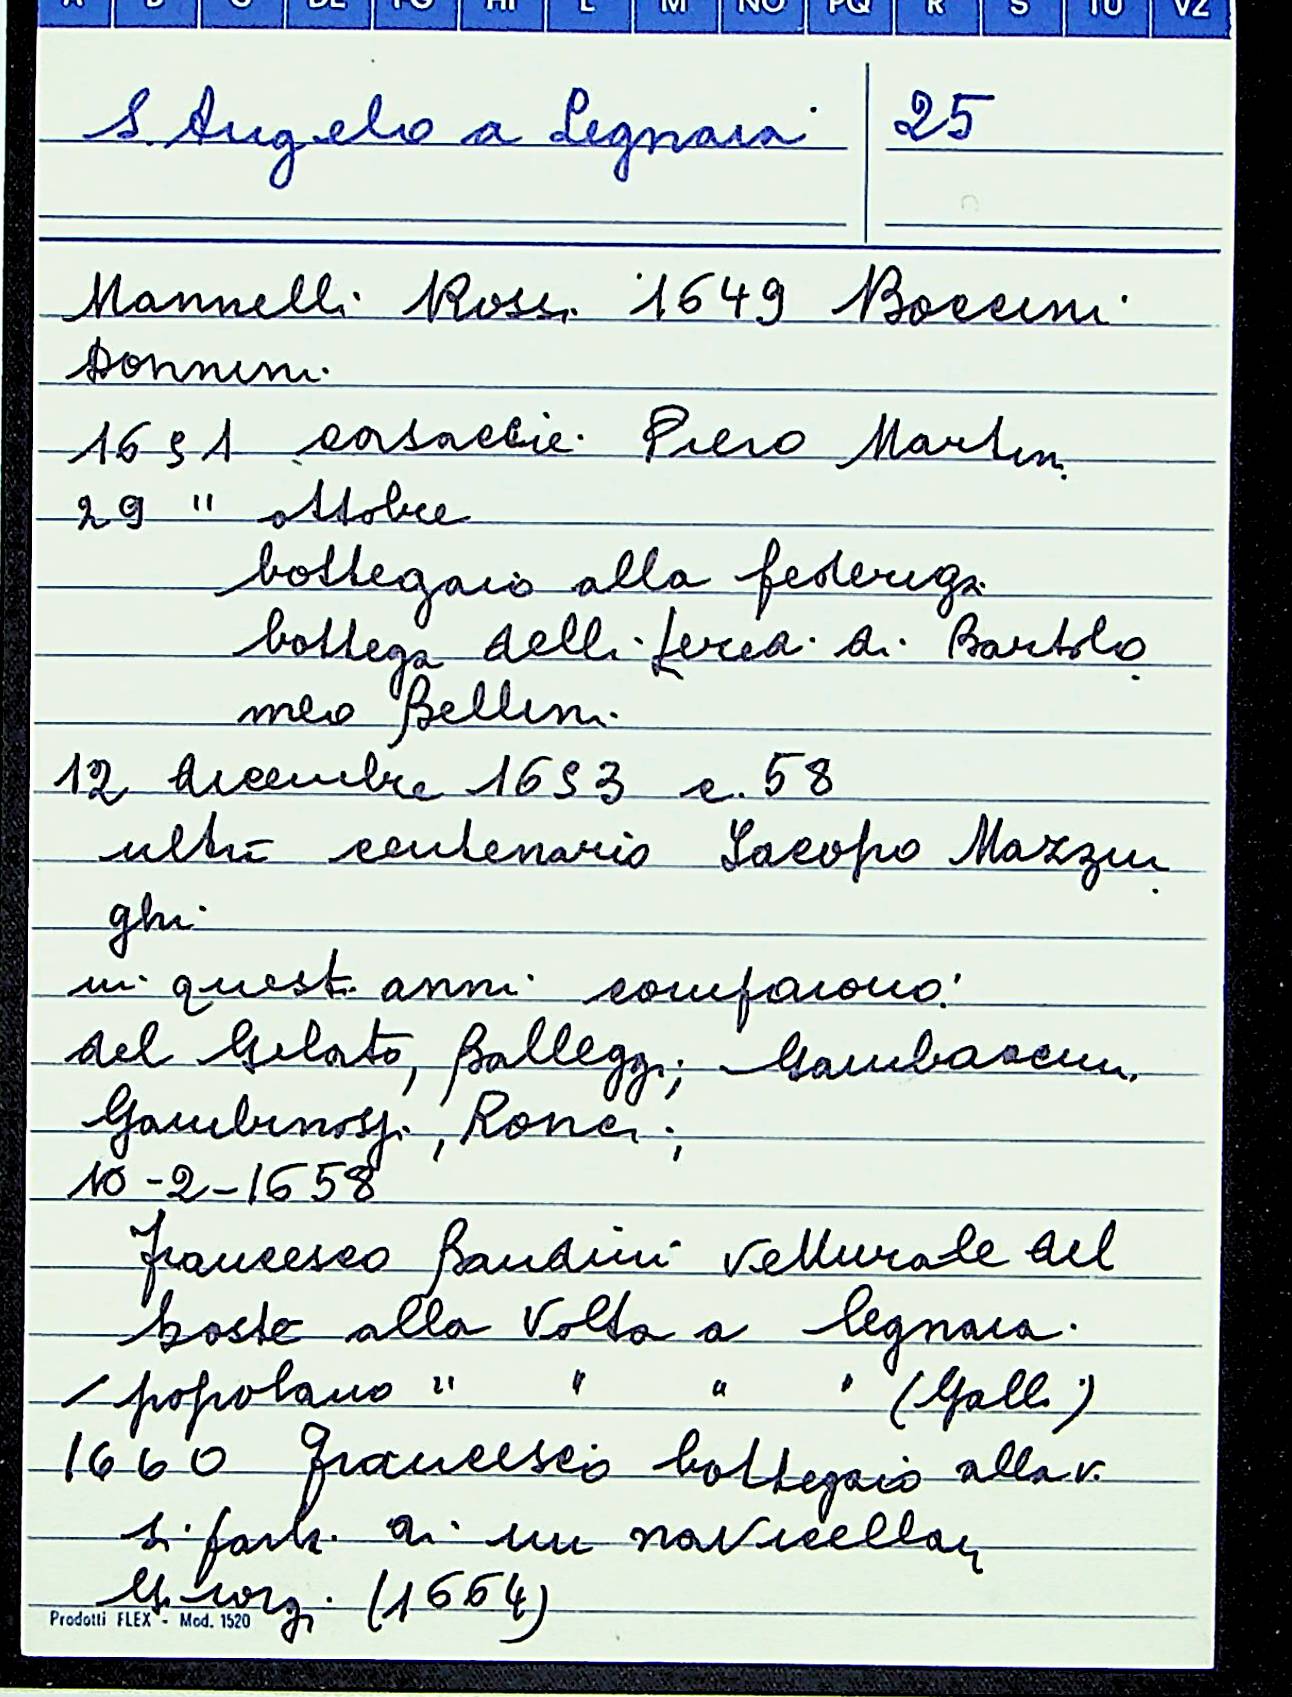 A B C DE FG HI L M NO PQ R S TU VZ
S. Angelo a Legnaia 25
Mannelli Rossi 1649 Boccini
Donnini
1651 casaccie Piero Martin
29 " ottobre
bottegaio alla federiga
bottega delli di Bartolo
meo Bellini
12 dicembre 1653 c. 58
ultra centenario Jacopo Mazzin
ghi
in questi anni compaiono:
del Gelato, Balleggi; Gambaccini
Gambinossi, Ronci;
10-2-1658
Francesco Bandini vetturale del
hoste alla Volta a legnaia.
/ popolano " " " " (Galli)
1660 Francesco bottegaio alla v.
si parla di un navicellaio
Giorgi (1664)
Prodotti FLEX - Mod. 1520